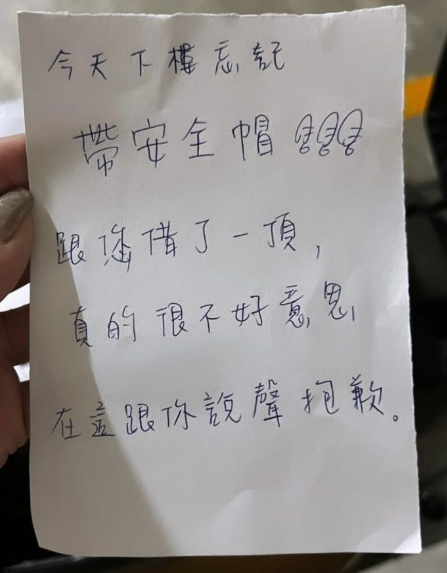 今天下樓忘記
帶安全帽!!!
跟您借了一頂,
真的很不好意思,
在這跟你說聲抱歉。